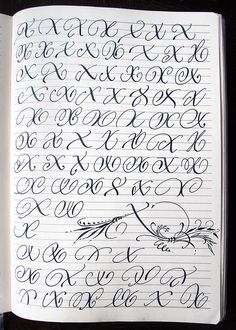 X X X X X X X X
X X X X X X X X
X X X X X X X
X X X X X X X X X
X X X X X X X X
X X X X X X X
X X X X X X X X
X X X X X X X
X X
X
X X X X X X
X X X X X X
X X X X X X